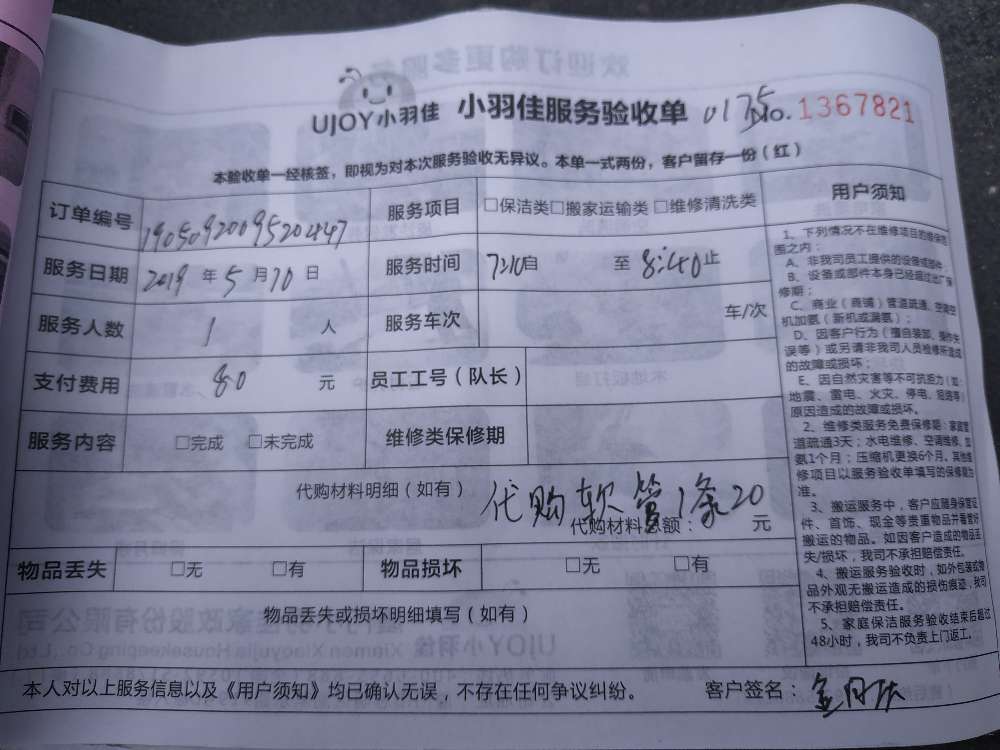 UJOY小羽佳 小羽佳服务验收单 0175 No. 1367821
本验收单一经核签，即视为对本次服务验收无异议。本单一式两份，客户留存一份（红）
订单编号 1905092009520447 服务项目 □保洁类□搬家运输类 □维修清洗类
服务日期 2019 年 5 月 10 日 服务时间 7:10 自 至 8:40 止
服务人数 1 人 服务车次 车/次
支付费用 80 元 员工工号（队长）
服务内容 □完成 □未完成 维修类保修期
代购材料明细（如有） 代购软管1条20
代购材料总额： 元
物品丢失 □无 □有 物品损坏 □无 □有
物品丢失或损坏明细填写（如有）
用户须知
1、下列情况不在维修项目的维保范
围之内：
A、非我司员工提供的设备或部件；
B、设备或部件本身已经超过出厂保
修期；
C、商业（商铺）管道疏通、空调空
机加氨（新机或漏氨）；
D、因客户行为（擅自装卸、操作失
误等）或另请非我司人员检修所造成
的故障或损坏；
E、因自然灾害等不可抗拒力（如：
地震、雷电、火灾、停电、短路等）
原因造成的故障或损坏。
2、维修类服务免费保修期：家庭管
道疏通3天；水电维修、空调维修、加
氨1个月；压缩机更换6个月。其他维
修项目以服务验收单填写的保修期为
准。
3、搬运服务中，客户应随身保管证
件、首饰、现金等贵重物品并看管好
搬运的物品。如因客户造成的物品丢
失/损坏，我司不承担赔偿责任。
4、搬运服务验收时，如外包装或物
品外观无搬运造成的损伤痕迹，我司
不承担赔偿责任。
5、家庭保洁服务验收结束后超过
48小时，我司不负责上门返工。
本人对以上服务信息以及《用户须知》均已确认无误，不存在任何争议纠纷。 客户签名：